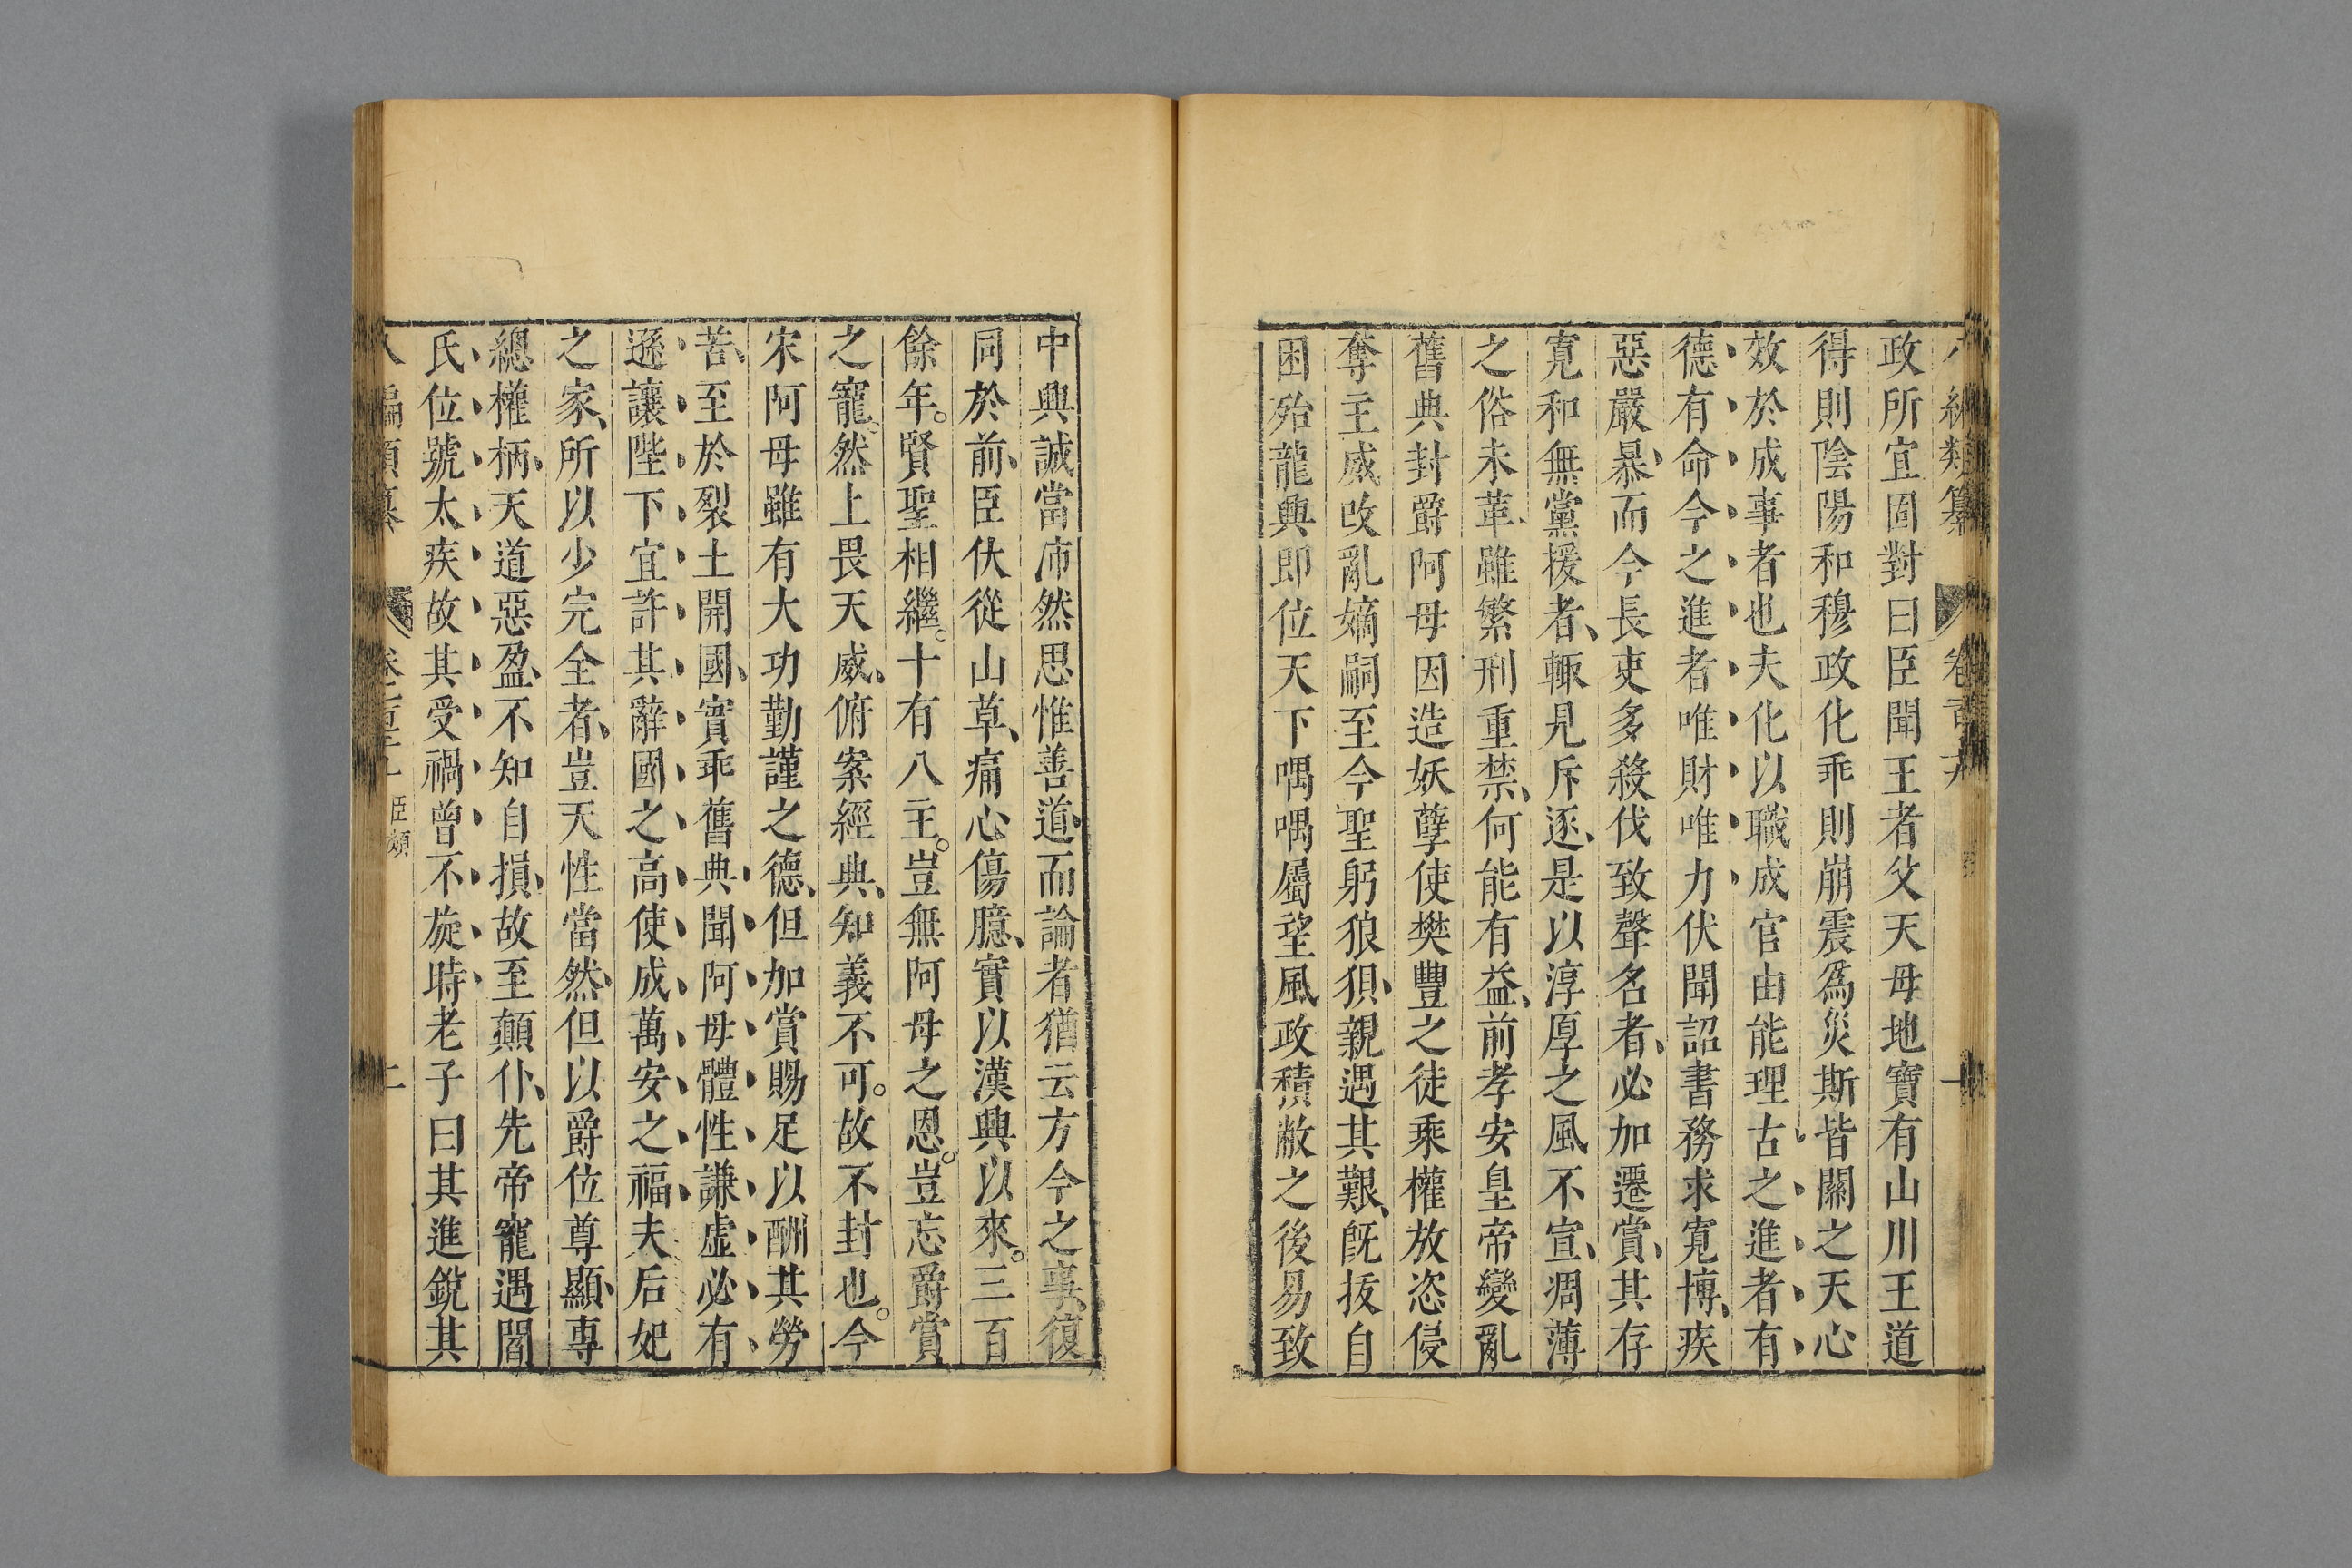 八編類纂 卷百九 一
政所宜固對曰臣聞王者父天母地寶有山川王道
得則陰陽和穆政化乖則崩震爲災斯皆關之天心
效於成事者也夫化以職成官由能理古之進者有
德有命今之進者唯財唯力伏聞詔書務求寬博疾
惡嚴暴而今長吏多殺伐致聲名者必加遷賞其存
寬和無黨援者輒見斥逐是以淳厚之風不宣彫薄
之俗未革雖繁刑重禁何能有益前孝安皇帝變亂
舊典封爵阿母因造妖孽使樊豐之徒乘權放恣侵
奪主威改亂嫡嗣至今聖躬狼狽親遇其艱旣拔自
困殆龍興即位天下喁喁屬望風政積敝之後易致
中興誠當沛然思惟善道而論者猶云方今之事復
同於前臣伏從山草痛心傷臆實以漢興以來三百
餘年賢聖相繼十有八主豈無阿母之恩豈忘爵賞
之寵然上畏天威俯案經典知義不可故不封也今
宋阿母雖有大功勤謹之德但加賞賜足以酬其勞
苦至於裂土開國實乖舊典聞阿母體性謙虛必有
遜讓陛下宜許其辭國之高使成萬安之福夫后妃
之家所以少完全者豈天性當然但以爵位尊顯專
總權柄天道惡盈不知自損故至顛仆先帝寵遇閻
氏位號太疾故其受禍曾不旋時老子曰其進銳其
八編類纂 二